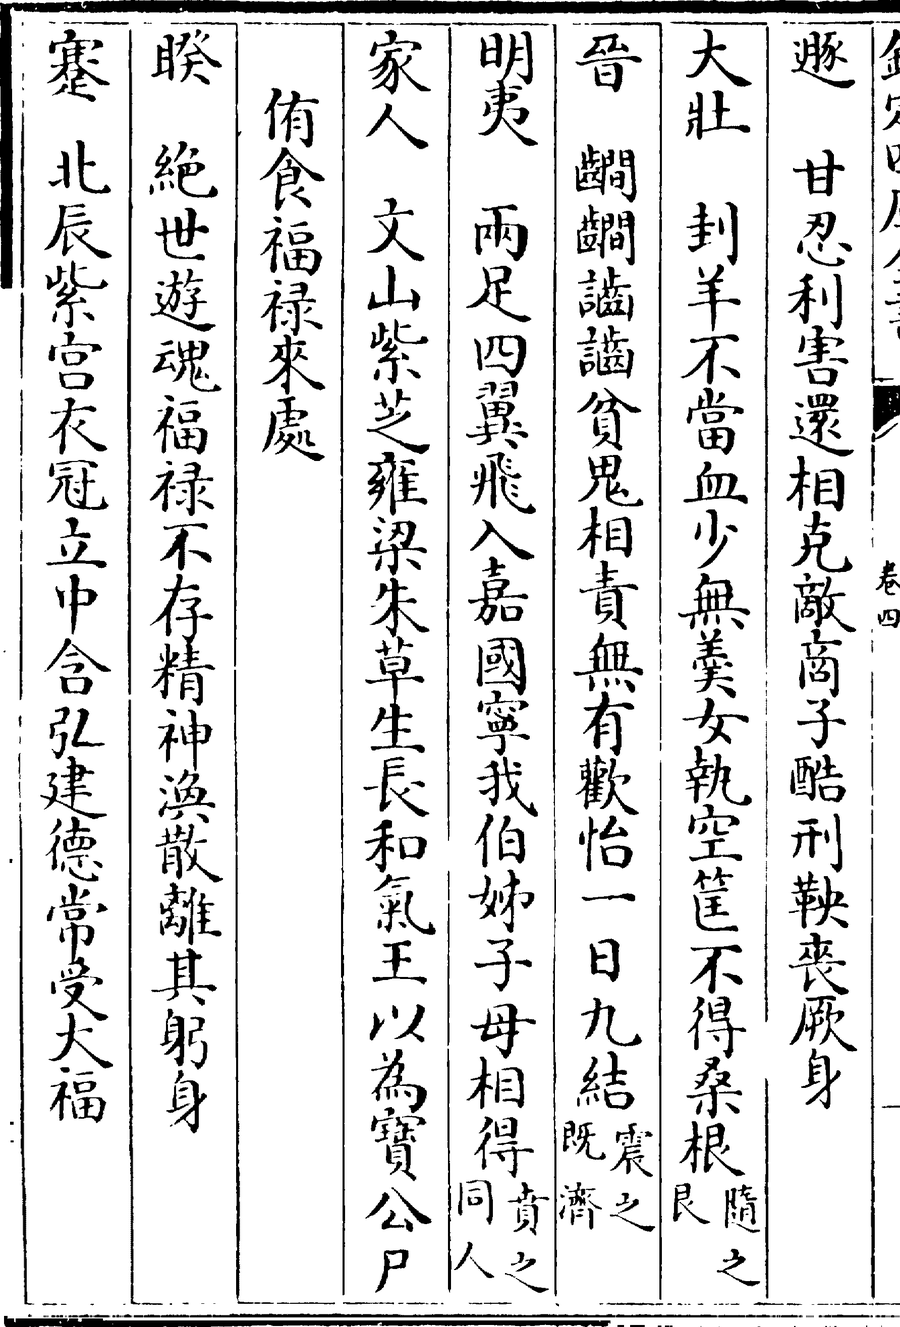 欽定四庫全書
卷四
遯　甘忍利害還相克敵商子酷刑鞅喪厥身
大壯　刲羊不當血少無羹女執空筐不得桑根隨之艮
晉　齰齰齧齧貧鬼相責無有歡怡一日九結震之既濟
明夷　兩足四翼飛入嘉國寧我伯姊子母相得賁之同人
家人　文山紫芝雍梁朱草生長和氣王以為寶公尸
侑食福禄來處
睽　絶世遊魂福禄不存精神渙散離其躬身
蹇　北辰紫宫衣冠立中含弘建德常受大福